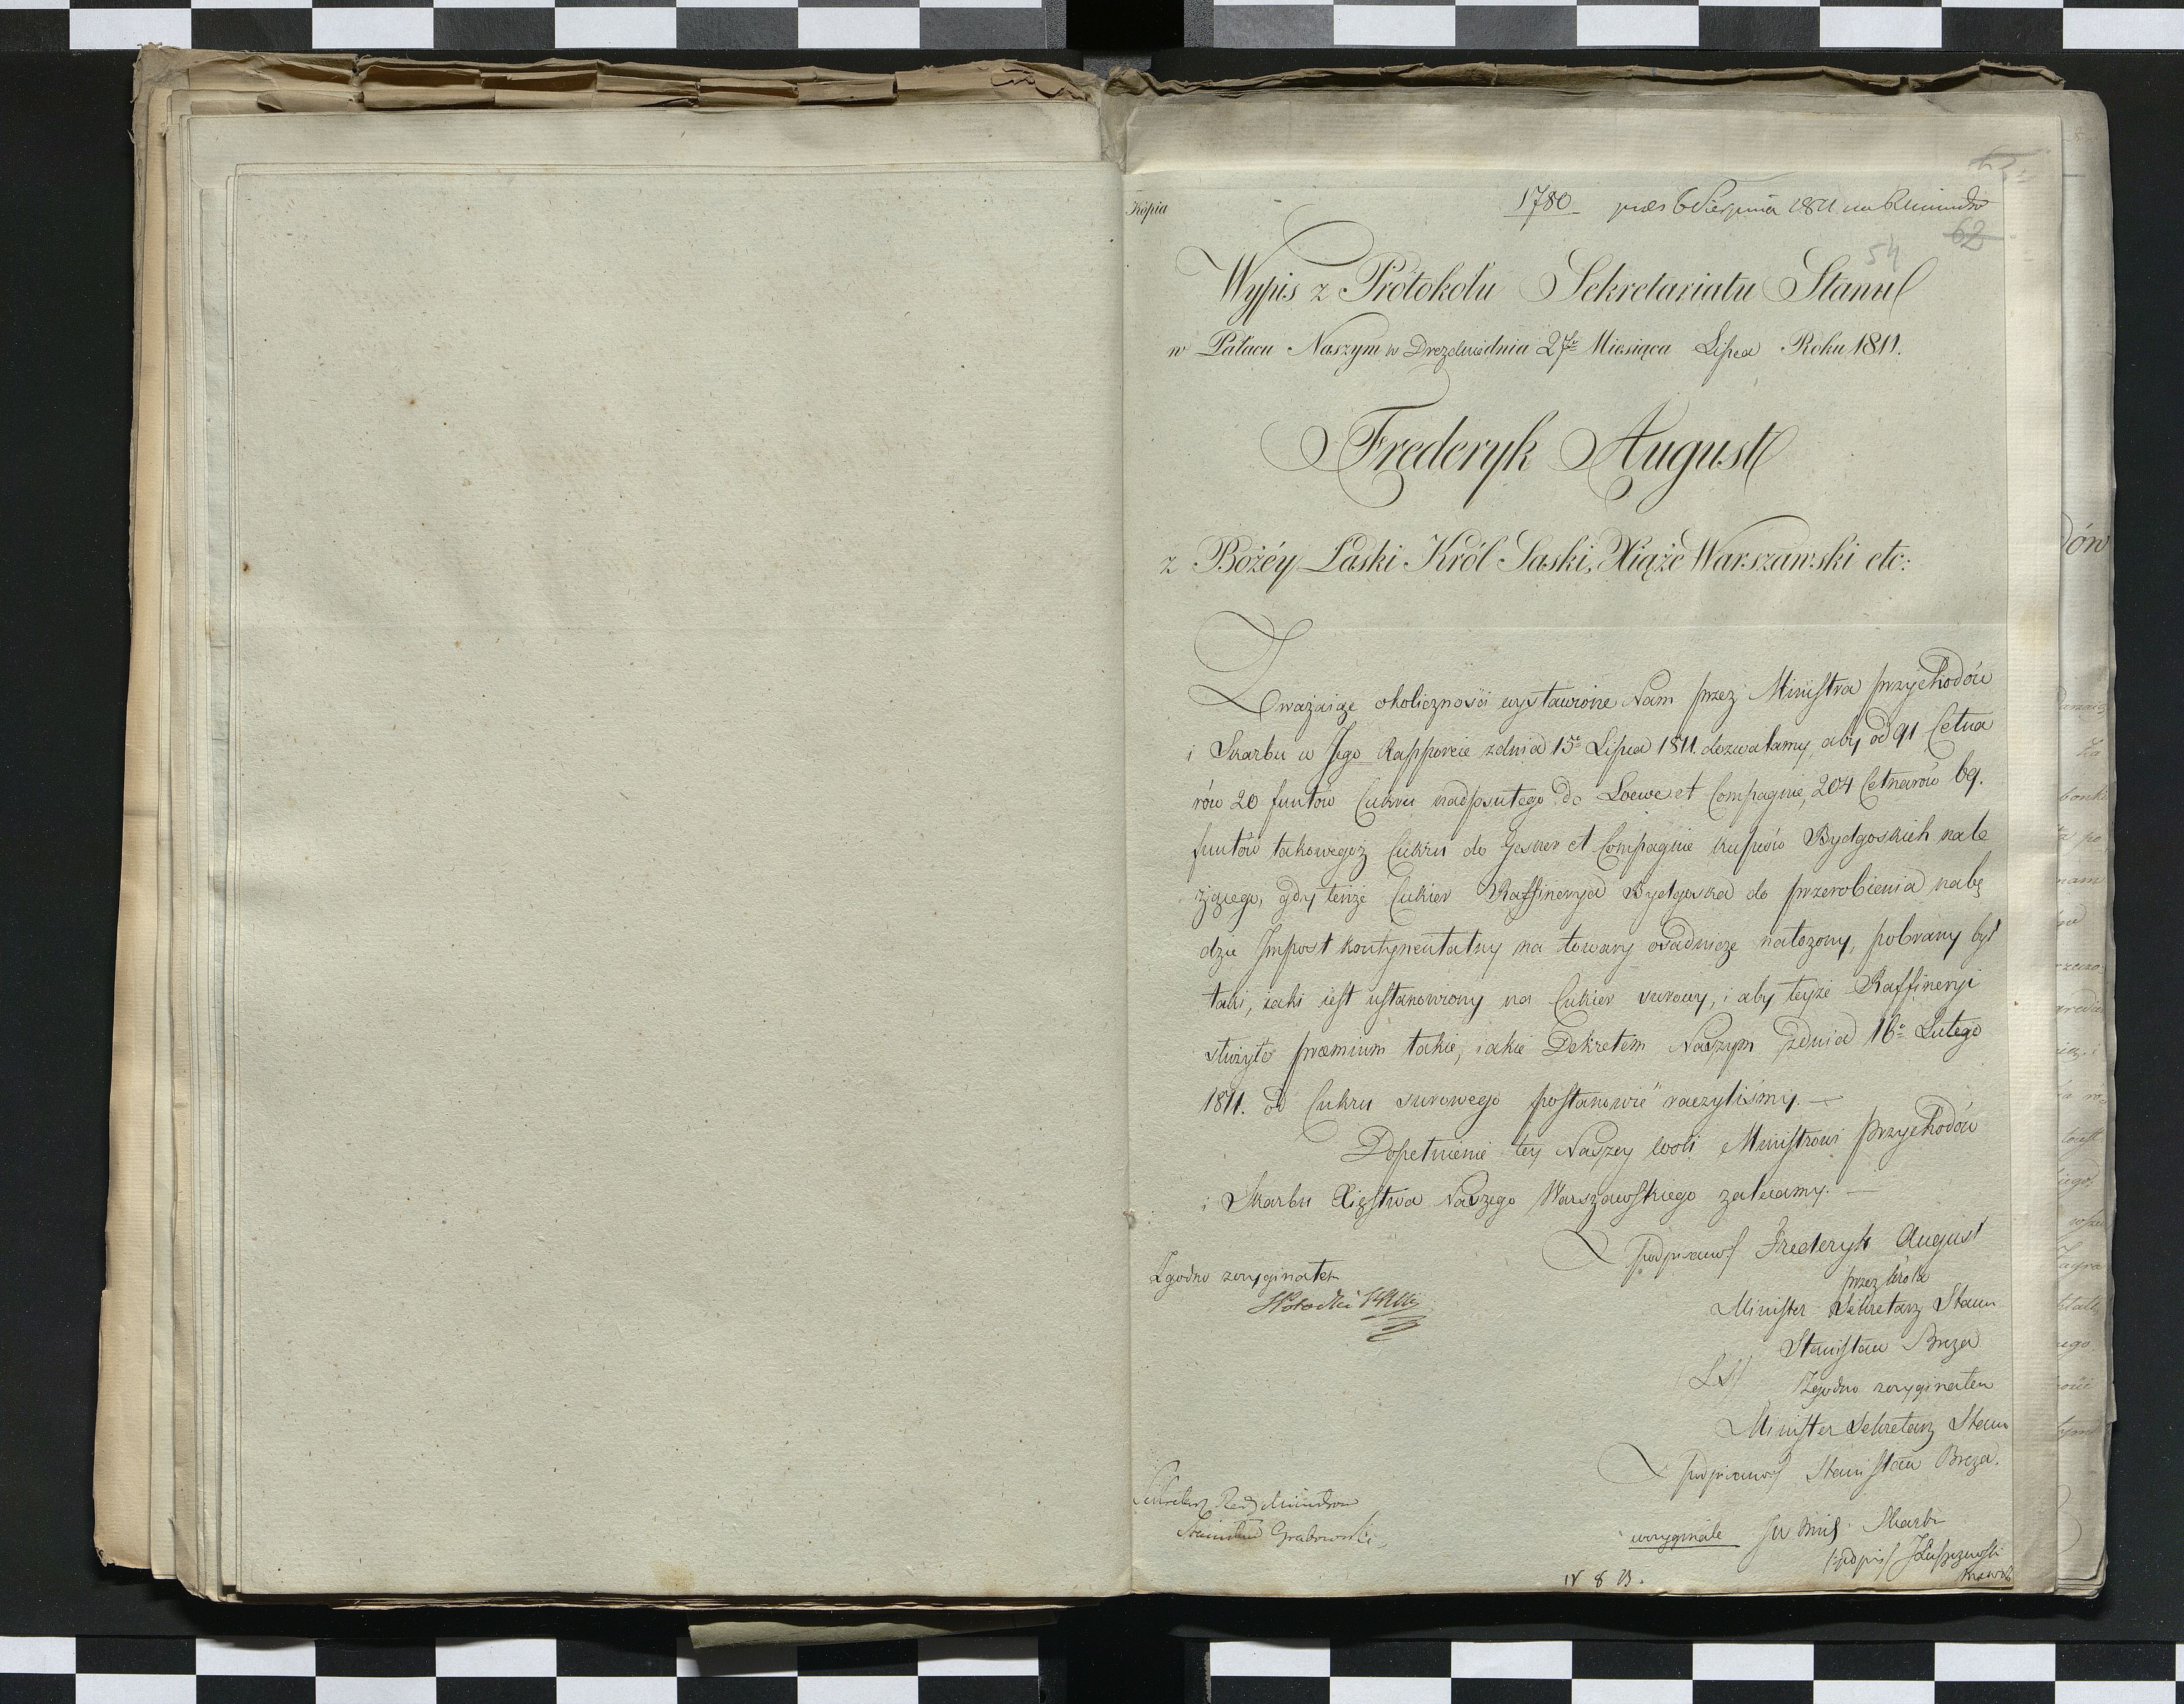 Kópia
1780 præs 6 Sierpnia 1811
62
54
Wypis z Protokółu Sekretariatu Stanu
w Pałacu Naszym w Dreznie dnia 27º Miesiąca Lipca Roku 1811.
Frederyk August
z Bożéy Łaski Król Saski, Xiąże Warszawski etc:
Zważaiąc okoliczności wystawione Nam przez Ministra przychodów
i Skarbu w Jego Rapporcie z dnia 15º Lipca 1811. dozwalamy, aby od 91 Cetna
rów 20 funtów Cukru nadpsutego do Loewe et Compagnie, 204 Cetnarów 69.
funtów takowegoż Cukru do Gesner et Compagnie kupców Bydgoskich nale
żącego, gdy tenże Cukier Raffinerya Bydgoska do przerobienia nabę
dzie Impost kontynentalny na towary osadnicze nałożony, pobrany był
taki, iaki iest ustanowiony na Cukier surowy, i aby teyże Raffineryi
służyło præmium takie, iakie Dekretem Naszym z dnia 16º Lutego
1811. od Cukru surowego postanowić raczyliśmy. —
Dopełnienie tey Naszey woli Ministrowi Przychodów
i Skarbu Xięstwa Naszego Warszawskiego zalecamy. —
podpisano Frederyk August
przez króla
Minister Sekretarz Stanu
Stanisław Breza
(LS) Zgodno z oryginałem
Minister Sekretarz Stanu
podpisano Stanisław Breza.
Zgodno z oryginałem
Sekretarz Rady Ministrów
Stanisław Grabowski
w oryginale Skarbu
podpis Łuszczewski